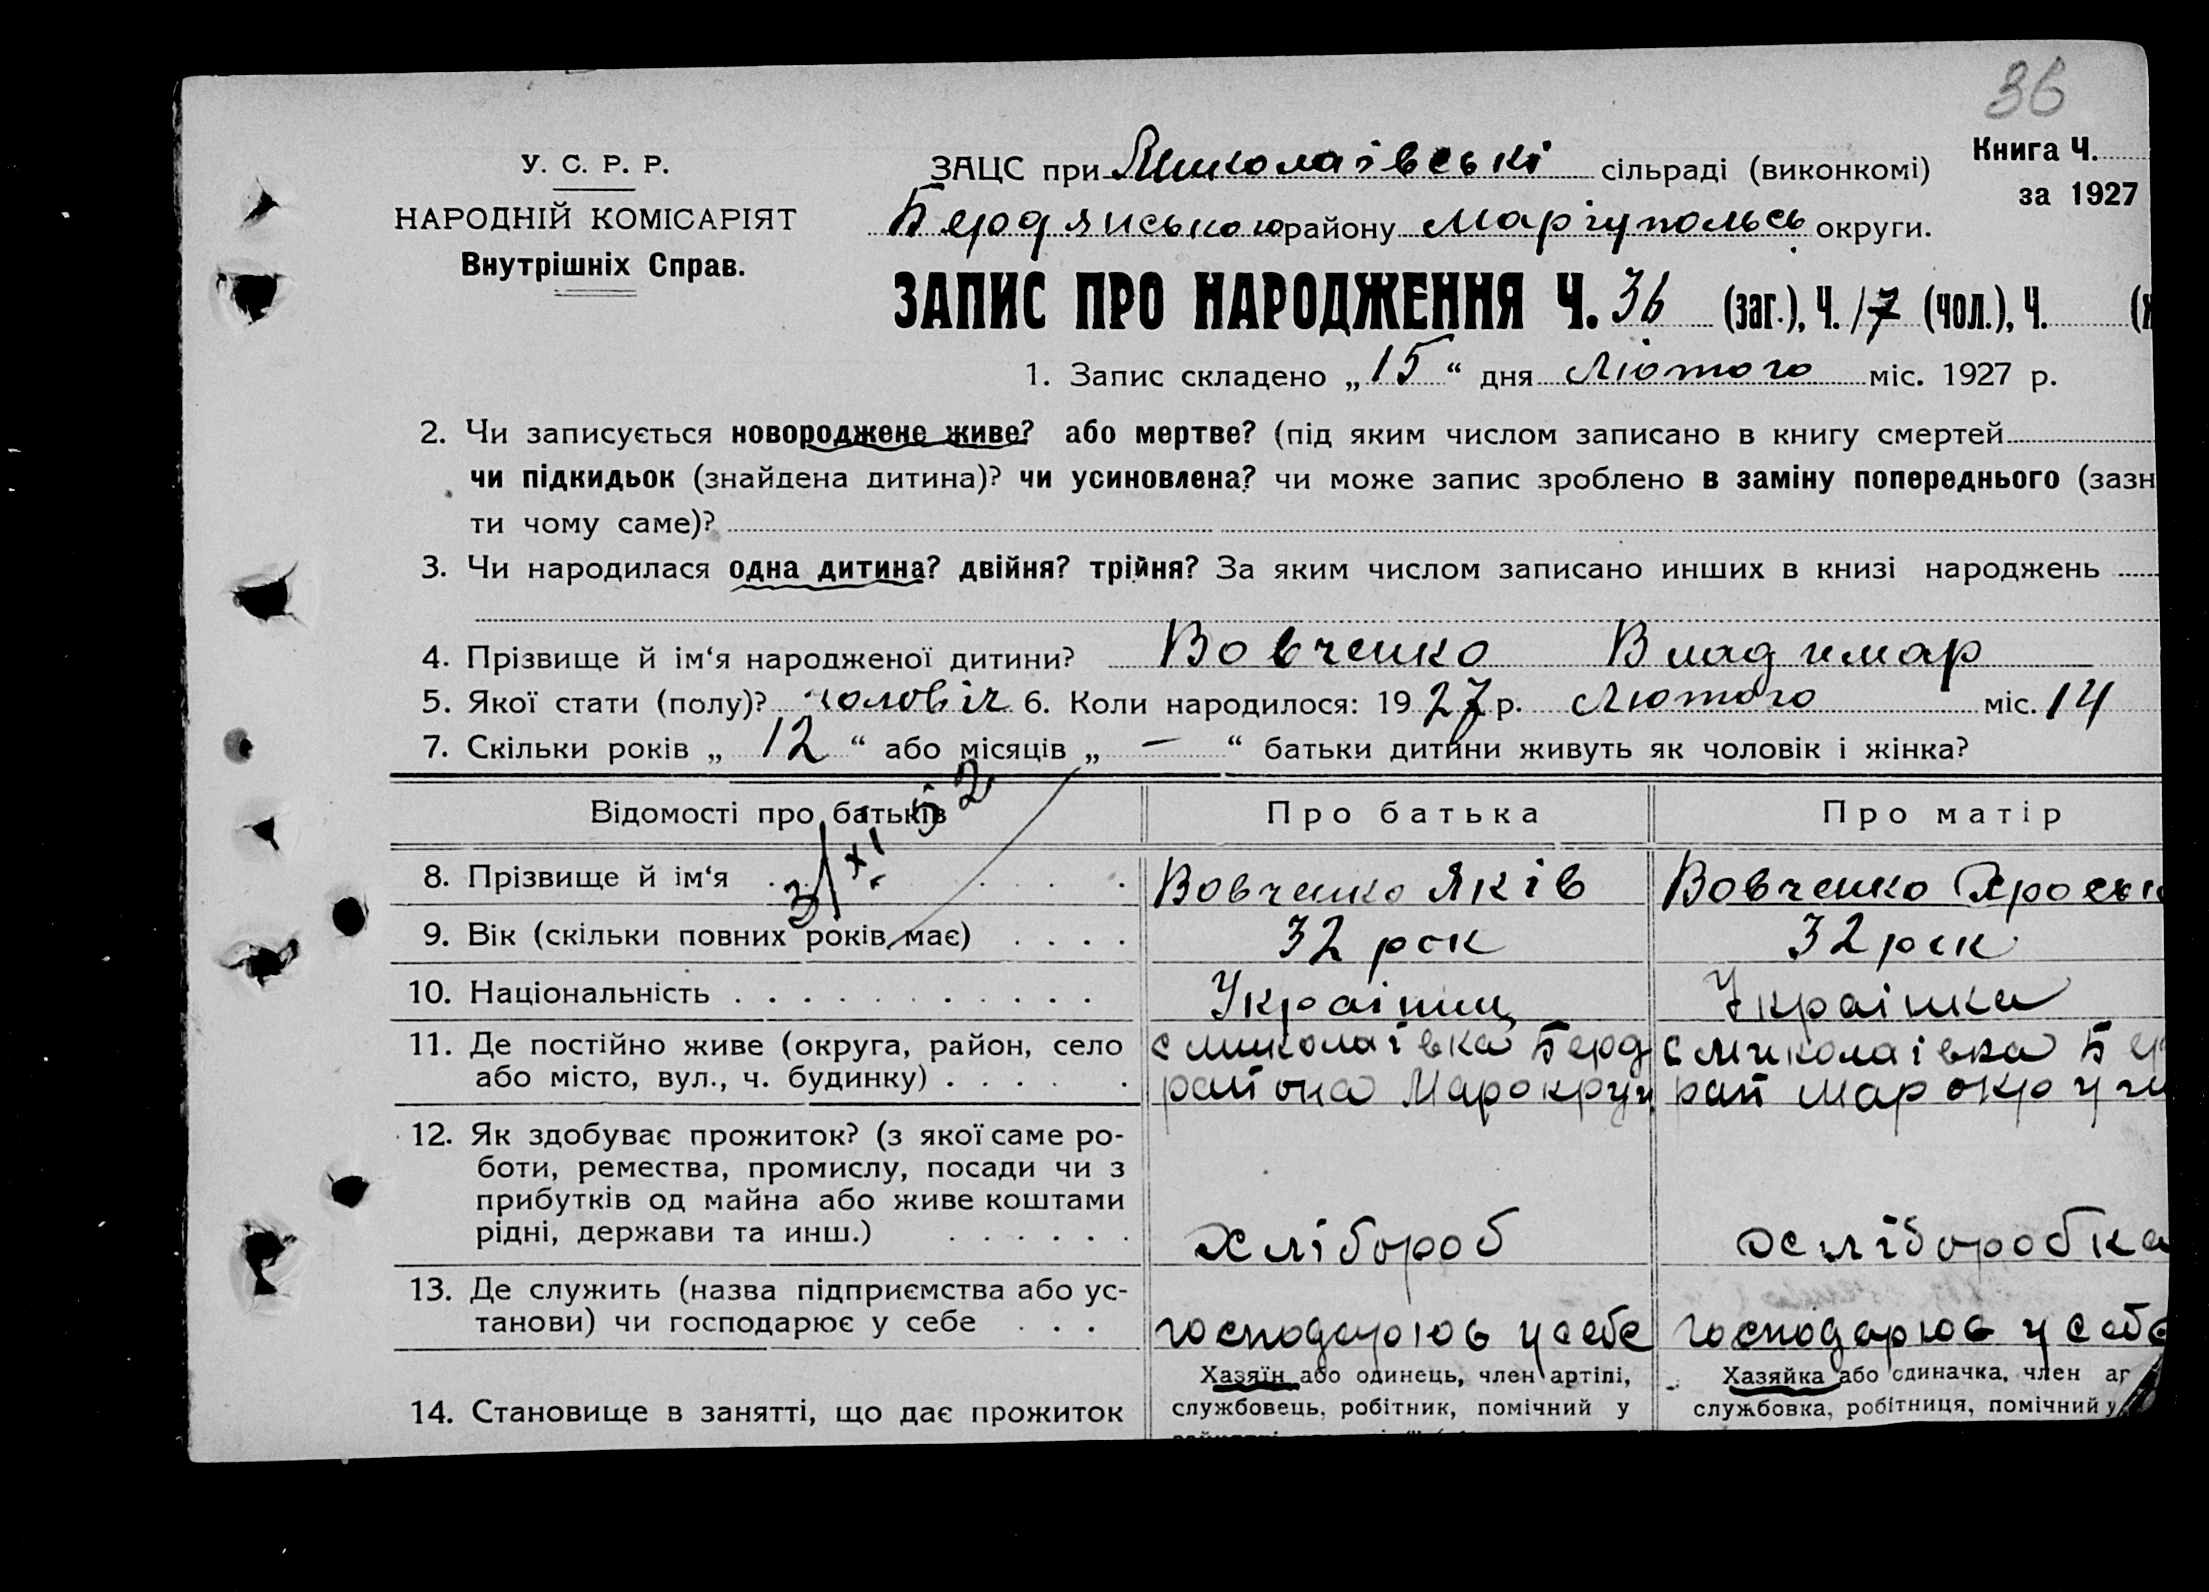 36
У. С. Р. Р.
НАРОДНІЙ КОМІСАРІЯТ
Внутрішніх Справ.
ЗАЦС при Миколаівські сільраді (виконкомі)
Книга Ч.
за 1927
Бердянського району Маріупольсь округи.
ЗАПИС ПРО НАРОДЖЕННЯ Ч. 36 (заг.), Ч. 17 (чол.), Ч.
1. Запис складено „15“ дня Лютого міс. 1927 р.
2. Чи записується новороджене живе? або мертве? (під яким числом записано в книгу смертей
чи підкидьок (знайдена дитина)? чи усиновлена? чи може запис зроблено в заміну попереднього (зазн
ти чому саме)?
3. Чи народилася одна дитина? двійня? трійня? За яким числом записано инших в книзі народжень
4. Прізвище й ім‘я народженої дитини? Вовченко Владимар
5. Якої стати (полу)? чоловіч 6. Коли народилося: 1927 р. Лютого міс. 14
7. Скільки років „ 12 “ або місяців „ — “ батьки дитини живуть як чоловік і жінка?
Відомості про батьків
Про батька
Про матір
3/XI 52
8. Прізвище й ім‘я
Вовченко Яків
Вовченко
9. Вік (скільки повних років має)
32 рок
32 рок
10. Національність
Украінец
Украінка
11. Де постійно живе (округа, район, село
або місто, вул., ч. будинку)
с Миколаівка Берд
района Марокруги
с Миколаівка Бер
рай Марокруги
12. Як здобуває прожиток? (з якої саме ро-
боти, ремества, промислу, посади чи з
прибутків од майна або живе коштами
рідні, держави та инш.)
хлібороб
хліборобка
13. Де служить (назва підприємства або ус-
танови) чи господарює у себе
господарює у себе
господарює у себе
14. Становище в занятті, що дає прожиток
Хазяїн або одинець, член артілі,
службовець, робітник, помічний у
Хазяйка або одиначка, член ар
службовка, робітниця, помічний у